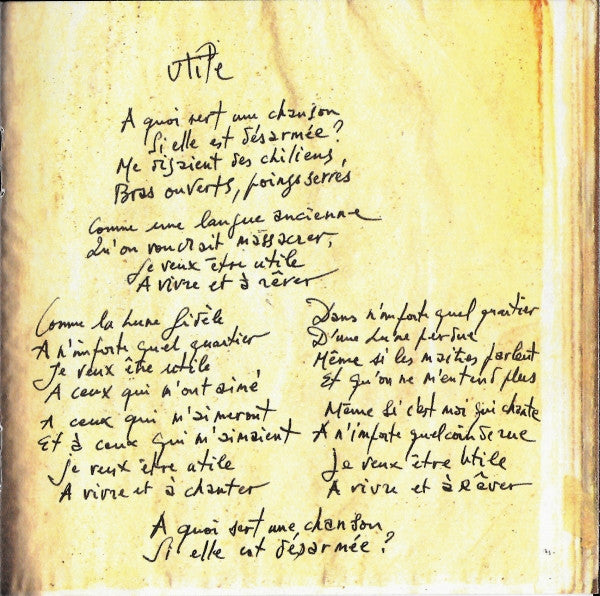 Utile
A quoi sert une chanson
Si elle est désarmée ?
Me disaient des chiliens,
Bras ouverts, poings serrés
Comme une langue ancienne
Qu'on voudrait massacrer,
Je veux être utile
A vivre et à rêver
Comme la lune fidèle
A n'importe quel quartier
Je veux être utile
A ceux qui m'ont aimé
A ceux qui m'aimeront
Et à ceux qui m'aimaient
Je veux être utile
A vivre et à chanter
Dans n'importe quel quartier
D'une lune perdue
Même si les maîtres parlent
Et qu'on ne m'entend plus
Même si c'est moi qui chante
A n'importe quel coin de rue
Je veux être Utile
A vivre et à rêver
A quoi sert une chanson
Si elle est désarmée ?